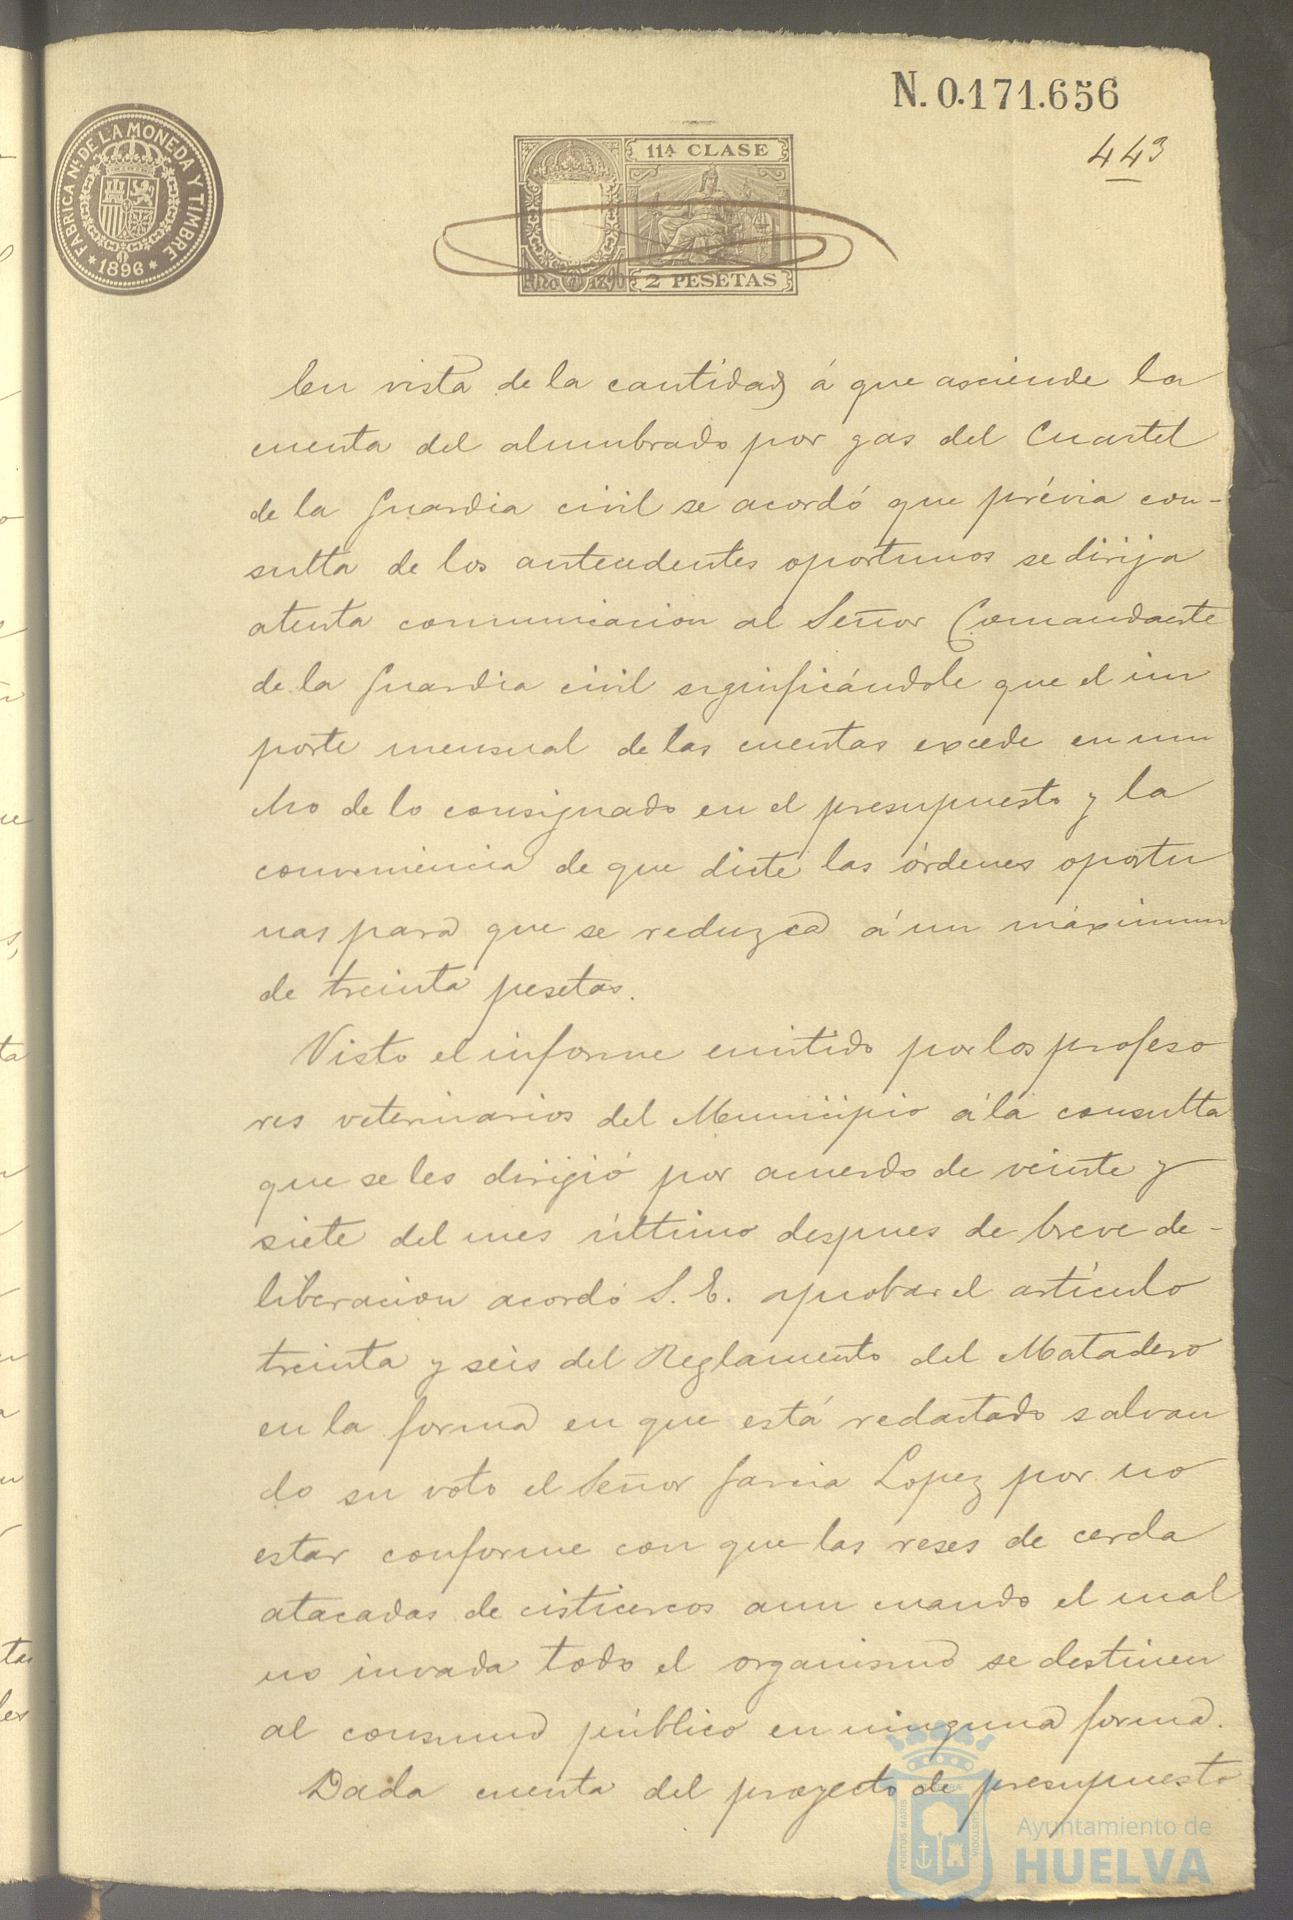 N. 0.171.656
443
FABRICA NL. DE LA MONEDA Y TIMBRE
* 1896 *
11ª CLASE
2 PESETAS
En vista de la cantidad á que asciende la
cuenta del alumbrado por gas del Cuartel
de la Guardia civil se acordó que prévia con-
sulta de los antecedentes oportunos se dirija
atenta comunicacion al Señor Comandante
de la Guardia civil significándole que el im
porte mensual de las cuentas excede en mu
cho de lo consignado en el presupuesto y la
conveniencia de que dicte las órdenes oportu
nas para que se reduzca á un máximum
de treinta pesetas.
Visto el informe emitido por los profeso
res veterinarios del Municipio á la consulta
que se les dirigió por acuerdo de veinte y
siete del mes último despues de breve de-
liberacion acordó S. E. aprobar el artículo
treinta y seis del Reglamento del Matadero
en la forma en que está redactado salvan
do su voto el Señor Garcia Lopez por no
estar conforme con que las reses de cerda
atacadas de cisticercos aun cuando el mal
no invada todo el organismo se destinen
al consumo público en ninguna forma.
Dada cuenta del proyecto de presupuesto
PORTUS MARIS
CUSTODIA
Ayuntamiento de
HUELVA